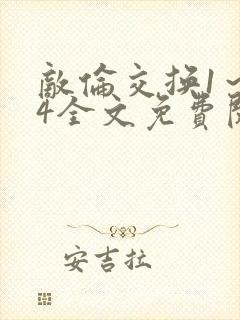 敵倫交換1~
4全文免費閱
安吉拉